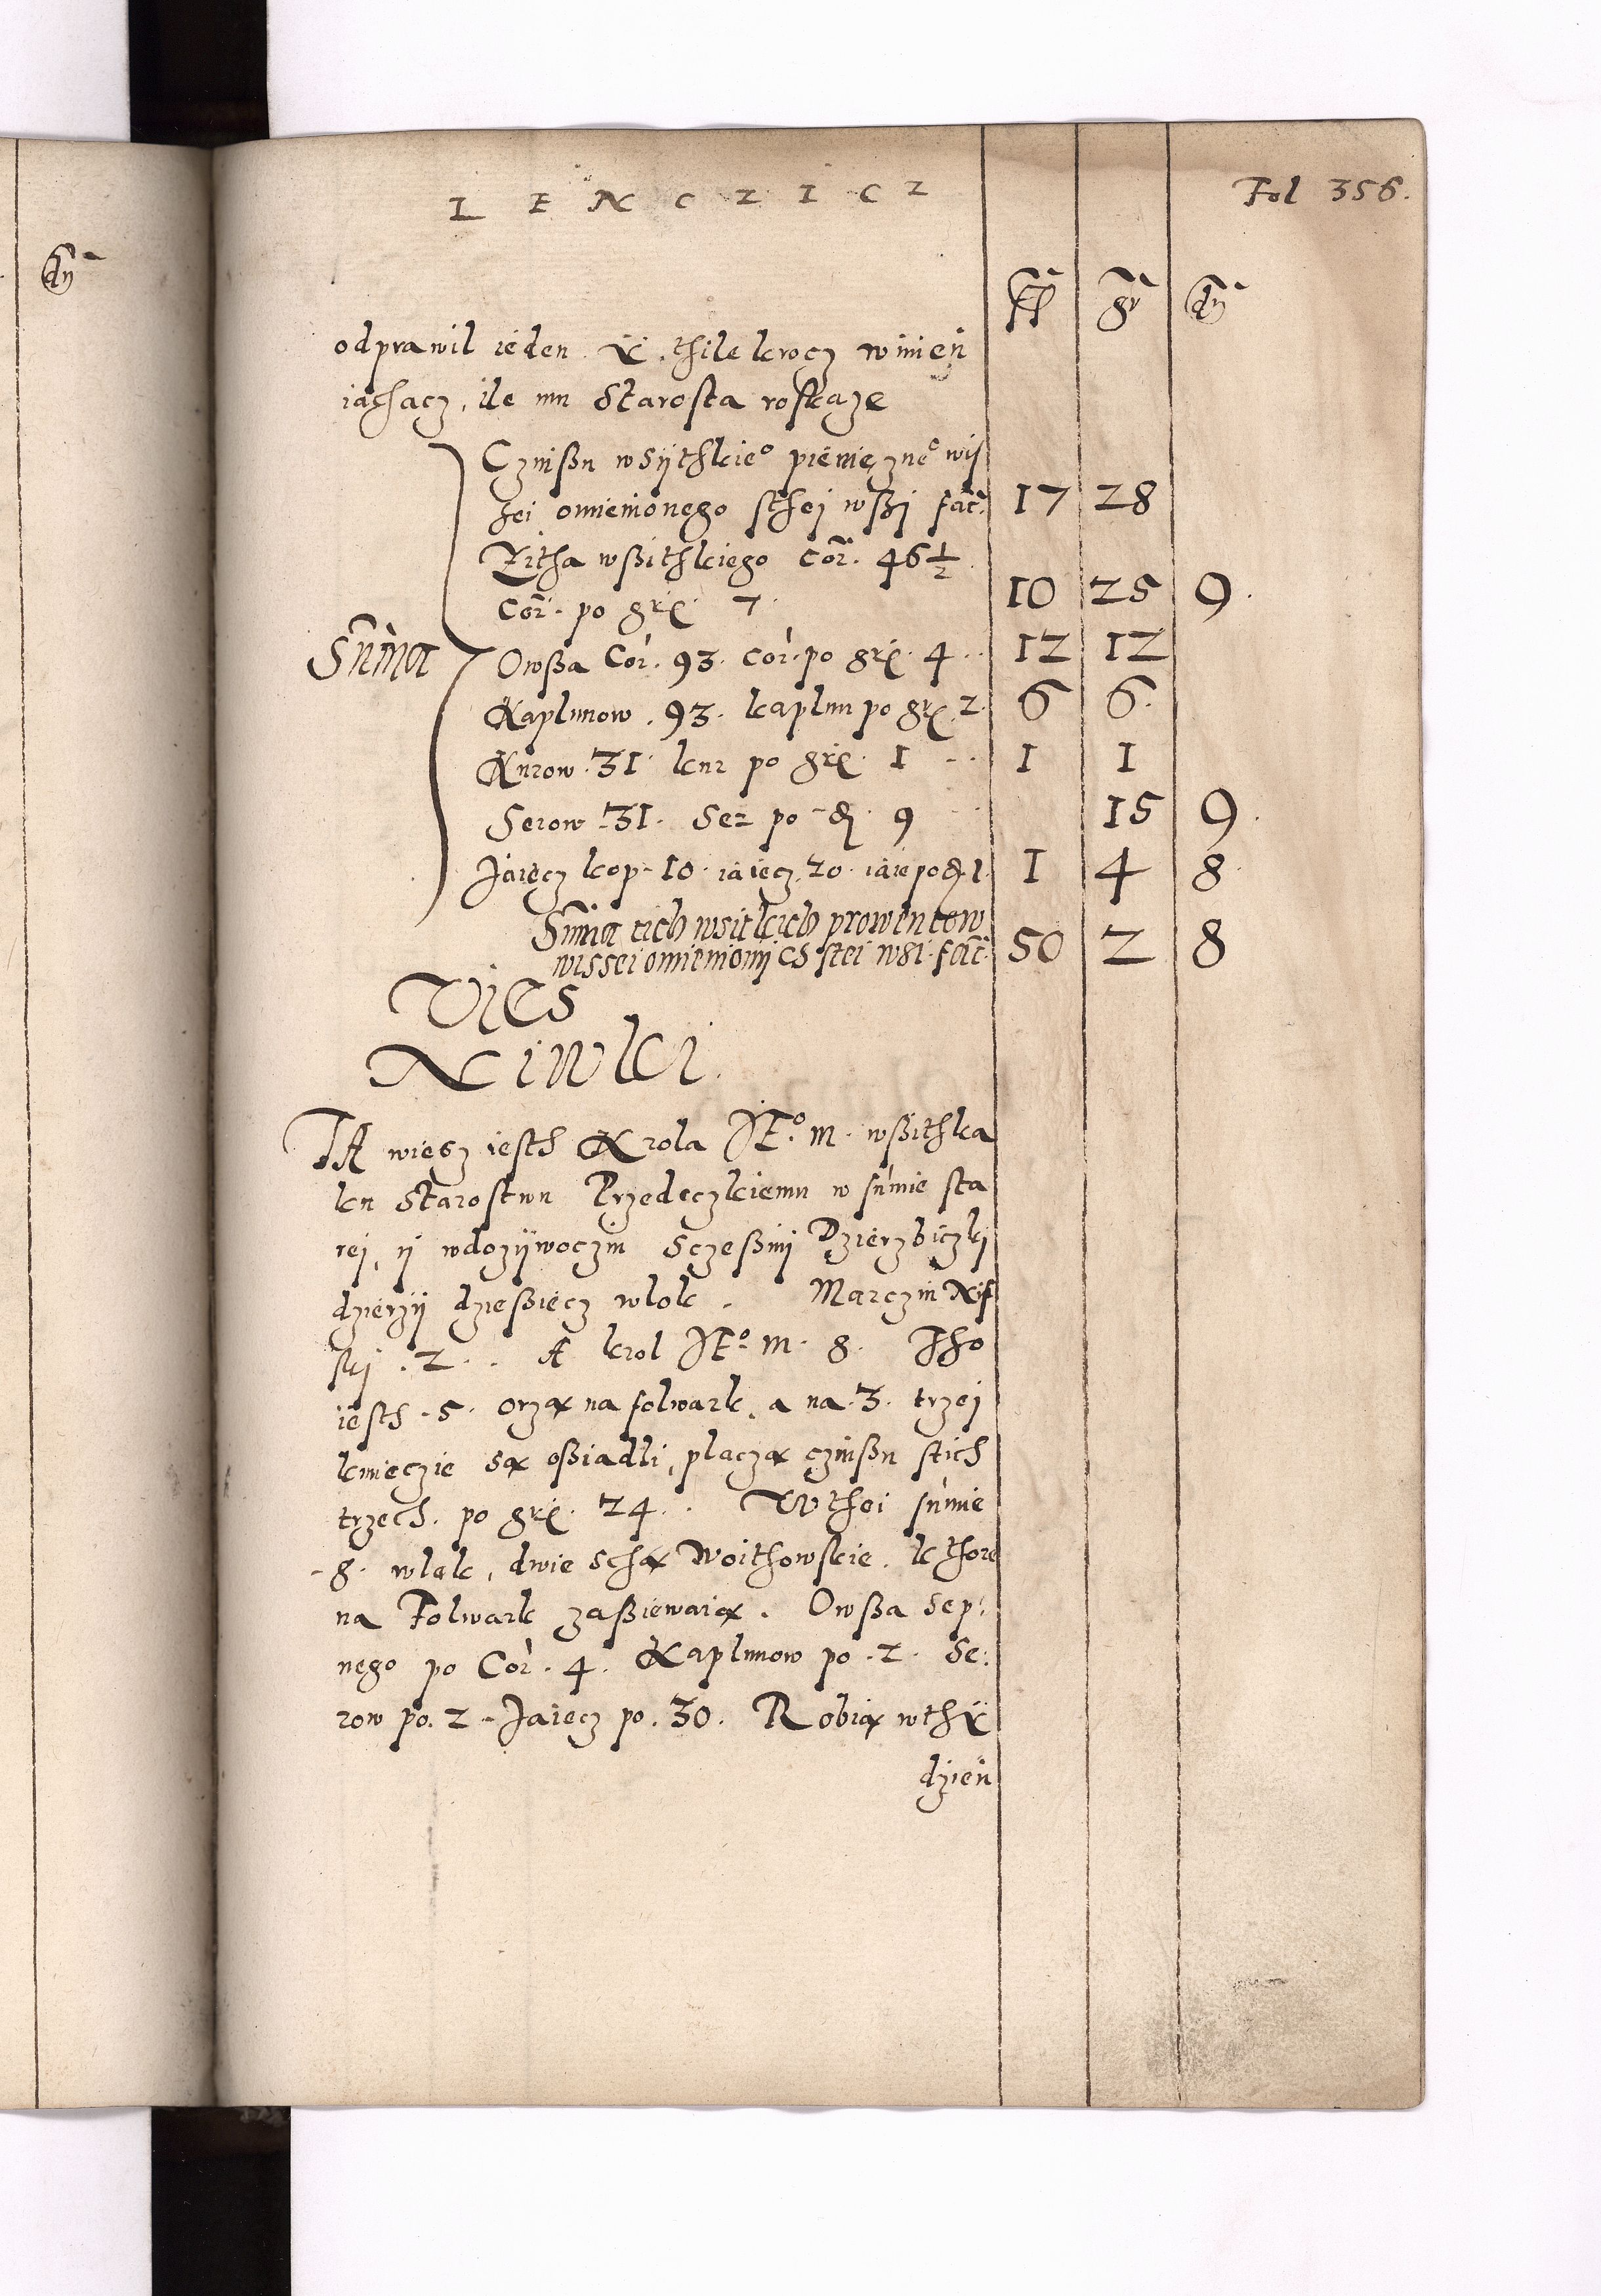 LENCZICZ
Fol 356.
fl gr dn
dn
odprawil ieden. Y. thile kroczy winien
iachacz, ile mu Starosta roskaze
Czinßu wsÿthkie° pieniężne° wis
sei omienionego sthei wßi facit 17 28
Zitha wßithkiego Cor. 46 1/2
Cor. po gr. 7. 10 25 9.
Suma
Owßa Cor. 93. cor. po gr. 4.. 12 12
Kaplunow. 93. kaplun po gr. 2. 6 6.
Kurow. 31. kur po gr. 1 .. 1 1
Serow. 31. Ser po d. 9 15 9.
Jaiecz kop. 10. iaiecz. 20. iaie po d. 1. 1 4 8.
Suma tich wsitkich prowentow
wissei omienionich stei wsi. facit. 50 2 8
Vies
Niwki.
TA wiesz iesth Krola JE°. m. wßithka
ku Starostwu Przedeczkiemu w sumie sta
rej, ij wdozÿwoczin Sczeßnij Dzierzbiczki
dzierzÿ dzießiecz wlok. Marczin Nis
ski. 2.. A krol JE°. m. 8. Tho
iesth. 5. orzą na folwark, a na. 3. trzei
kmieczie są oßiadli, placzą czinßu stich
trzech. po gr. 24.. W thei sumie
. 8. wlok, dwie sthą Woithowskie. kthore
na Folwark zaßiewaią. Owßa Sep:
nego po Cor. 4. Kaplunow po. 2. Se:
row po. 2. Jaiecz po. 30. Robią wthÿ
dzien